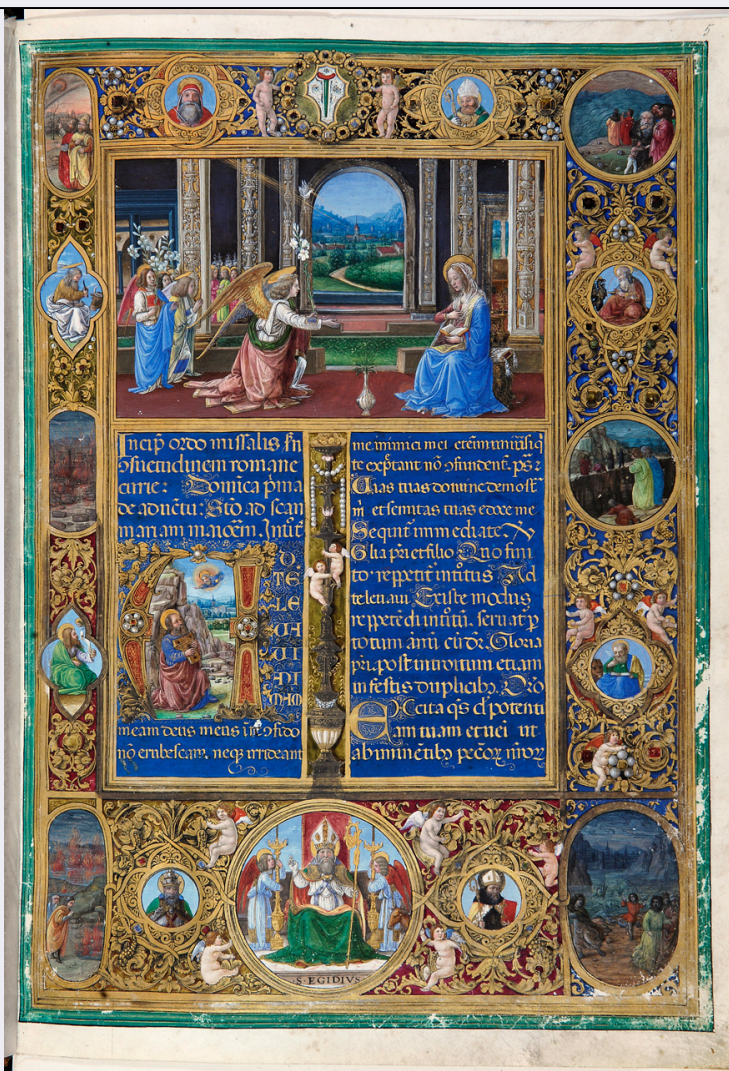 5
Incip̄ ordo missalis sn̄
ꝯsuetudinem romane
curie: Domica p̄ma
de aduētu: Stō ad scam
mariam maiorem. Introit
A D
TE
LE
UA
UI
NI
MAM
meam deus meus ī te ꝯfido
nō erubescam. neq irrideant
me inimici mei etenim uniusi q̄
te expectant nō ꝯfundent. ps
Uias tuas domine demost
m et semitas tuas edoce me
Sequit immediate. V
Glia pri et filio Quo fini
to repetit introitus Ad
te leuaui. Et iste modus
repetedi introitū. seruat p
totum annū cū dr. Gloria
pri. post introitum etiam
in festis duplicibꝫ. Oro
Excita qs dn̄e potenti
am tuam et ueni ut
ab iminētibꝫ peccoꝝ nroꝝ
S·EGIDIVS